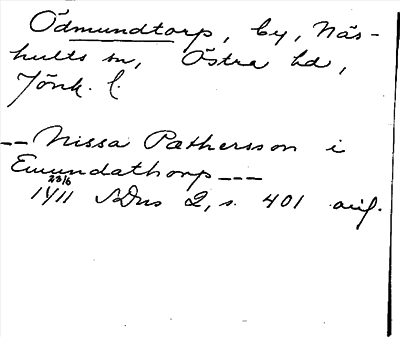 Ödmundtorp, by, Näs-
hults sn, Östra hd,
Jönk. l.
-- Nissa Pathersson i
Emundathorp ---
23/6
1411 SDns 2, s. 401 orig.